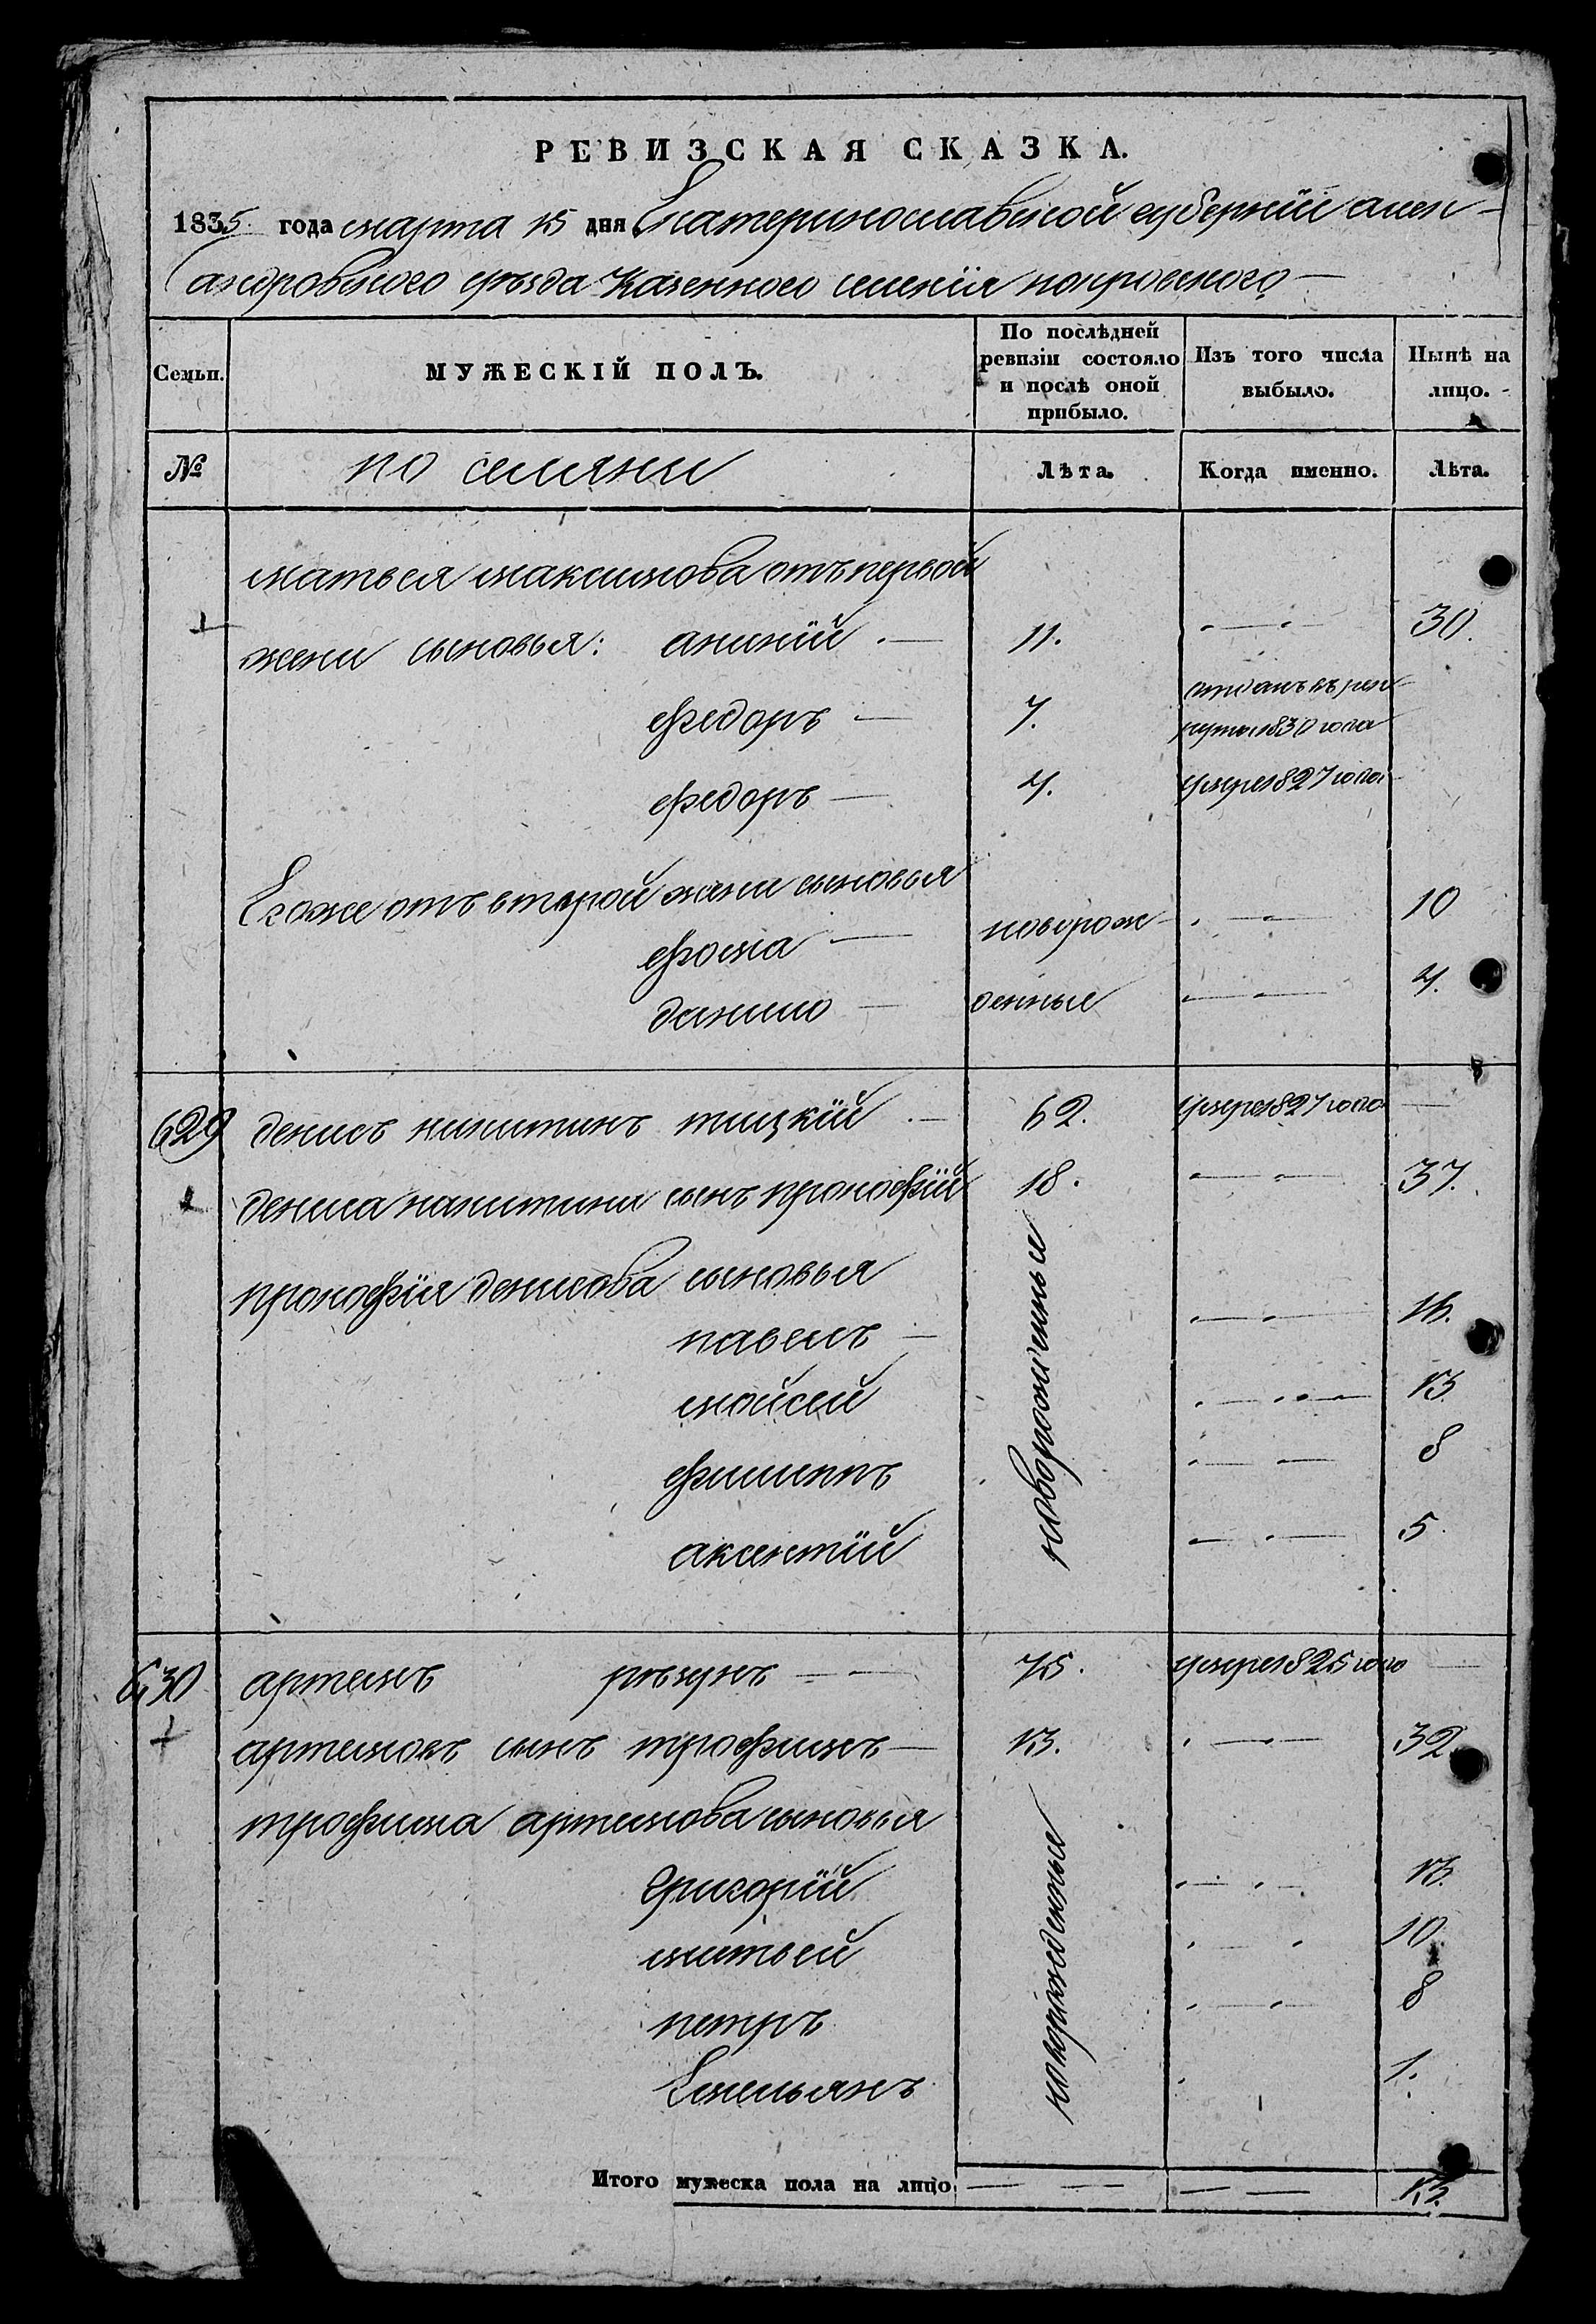 РЕВИЗСКАЯ СКАЗКА.
1835 года марта 15 дня Екатеринославской губернїи алек-
андровского уѣзда Казенного селенїя покровского
Семьи.
МУЖЕСКІЙ ПОЛЪ.
По послѣдней ревизіи состояло и послѣ оной прибыло.
Изъ того числа выбыло.
Нынѣ на лицо.
№
по селяни
Лѣта.
Когда именно.
Лѣта.
матвея максимова отъ первой
жени сыновья: ананїй 11. 30.
федоръ 7. отданъ въ рек
рути 1830 года
федоръ 4. умре 1827 года
Егоже отъ второй жени сыновья
фома новорож 10
данило денные 4.
629 денисъ никитинъ 62. умре 1827 года
дениса никитина сынъ прокофїй 18. 37.
прокофїя денисова сыновья
новорожденные
павелъ 16.
мойсей 13
филиппъ 8
аксентїй 5
630 артемъ 75. умре 1825 года
артемовъ сынъ трофимъ 13. 32
трофима артемова сыновья
новорожденные
Григорїй 13.
матвей 10
петръ 8
Емельянъ 1.
Итого мужеска пола на лицо. 13.